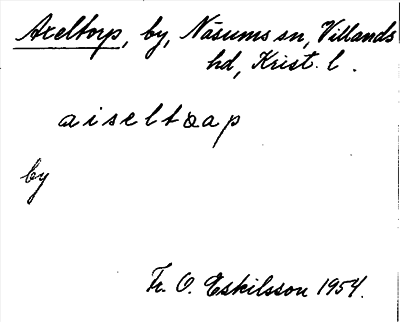 Axeltorp, by, Näsums sn, Villands
hd, Krist. l.
aiseltaap
by
Fr. O. Eskilsson 1954.